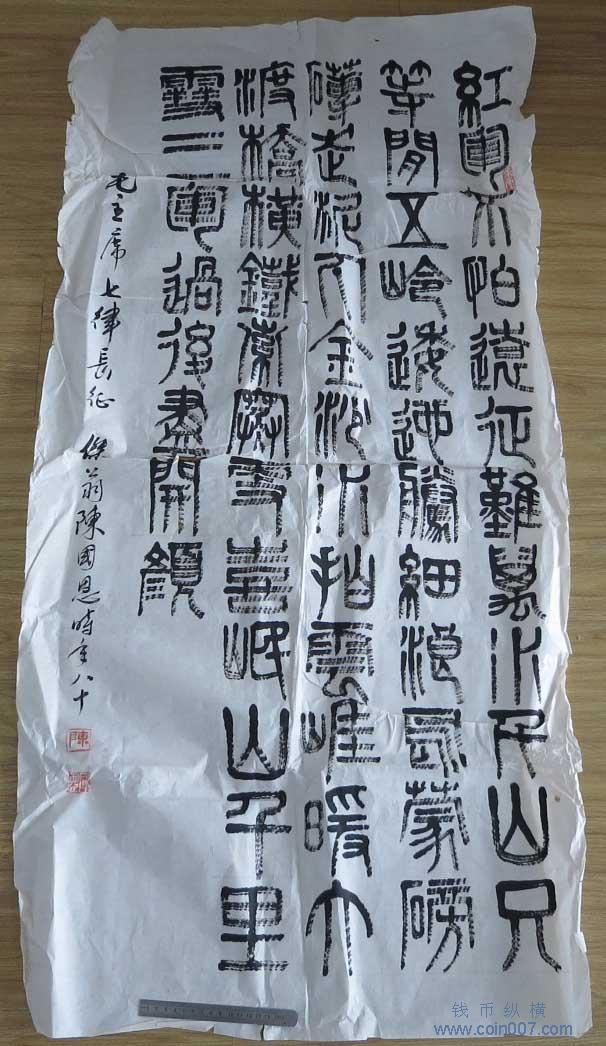 紅軍不怕遠征難萬水千山只
等閒五岭逶迤騰細浪烏蒙磅
礴走泥丸金沙水拍雲崖暖大
渡橋橫鐵索寒更喜岷山千里
雪三軍過後盡開顏
毛主席七律長征 傑翁陳國恩時年八十
陳
钱币纵横
www.coin007.com